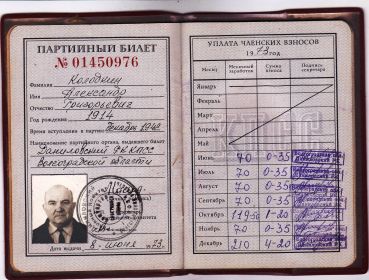 ПАРТИЙНЫЙ БИЛЕТ
№ 01450976
Фамилия Колодкин
Имя Александр
Отчество Григорьевич
Год рождения 1914
Время вступления в партию Декабрь 1942
Наименование партийного органа, выдавшего билет
Даниловский РК КПСС
Волгоградской области
Дата выдачи 8 июня 1973.
УПЛАТА ЧЛЕНСКИХ ВЗНОСОВ
1973 год
Месяц Месячный заработок Сумма взноса Подпись секретаря
Январь
Февраль
Март
Апрель
Май
КПСС
Июнь 70 0-35
Июль 70 0-35
Август 70 0-35
Сентябрь 70 0-35
Октябрь 119-50 1-20
Ноябрь 70 0-35
Декабрь 210 4-20